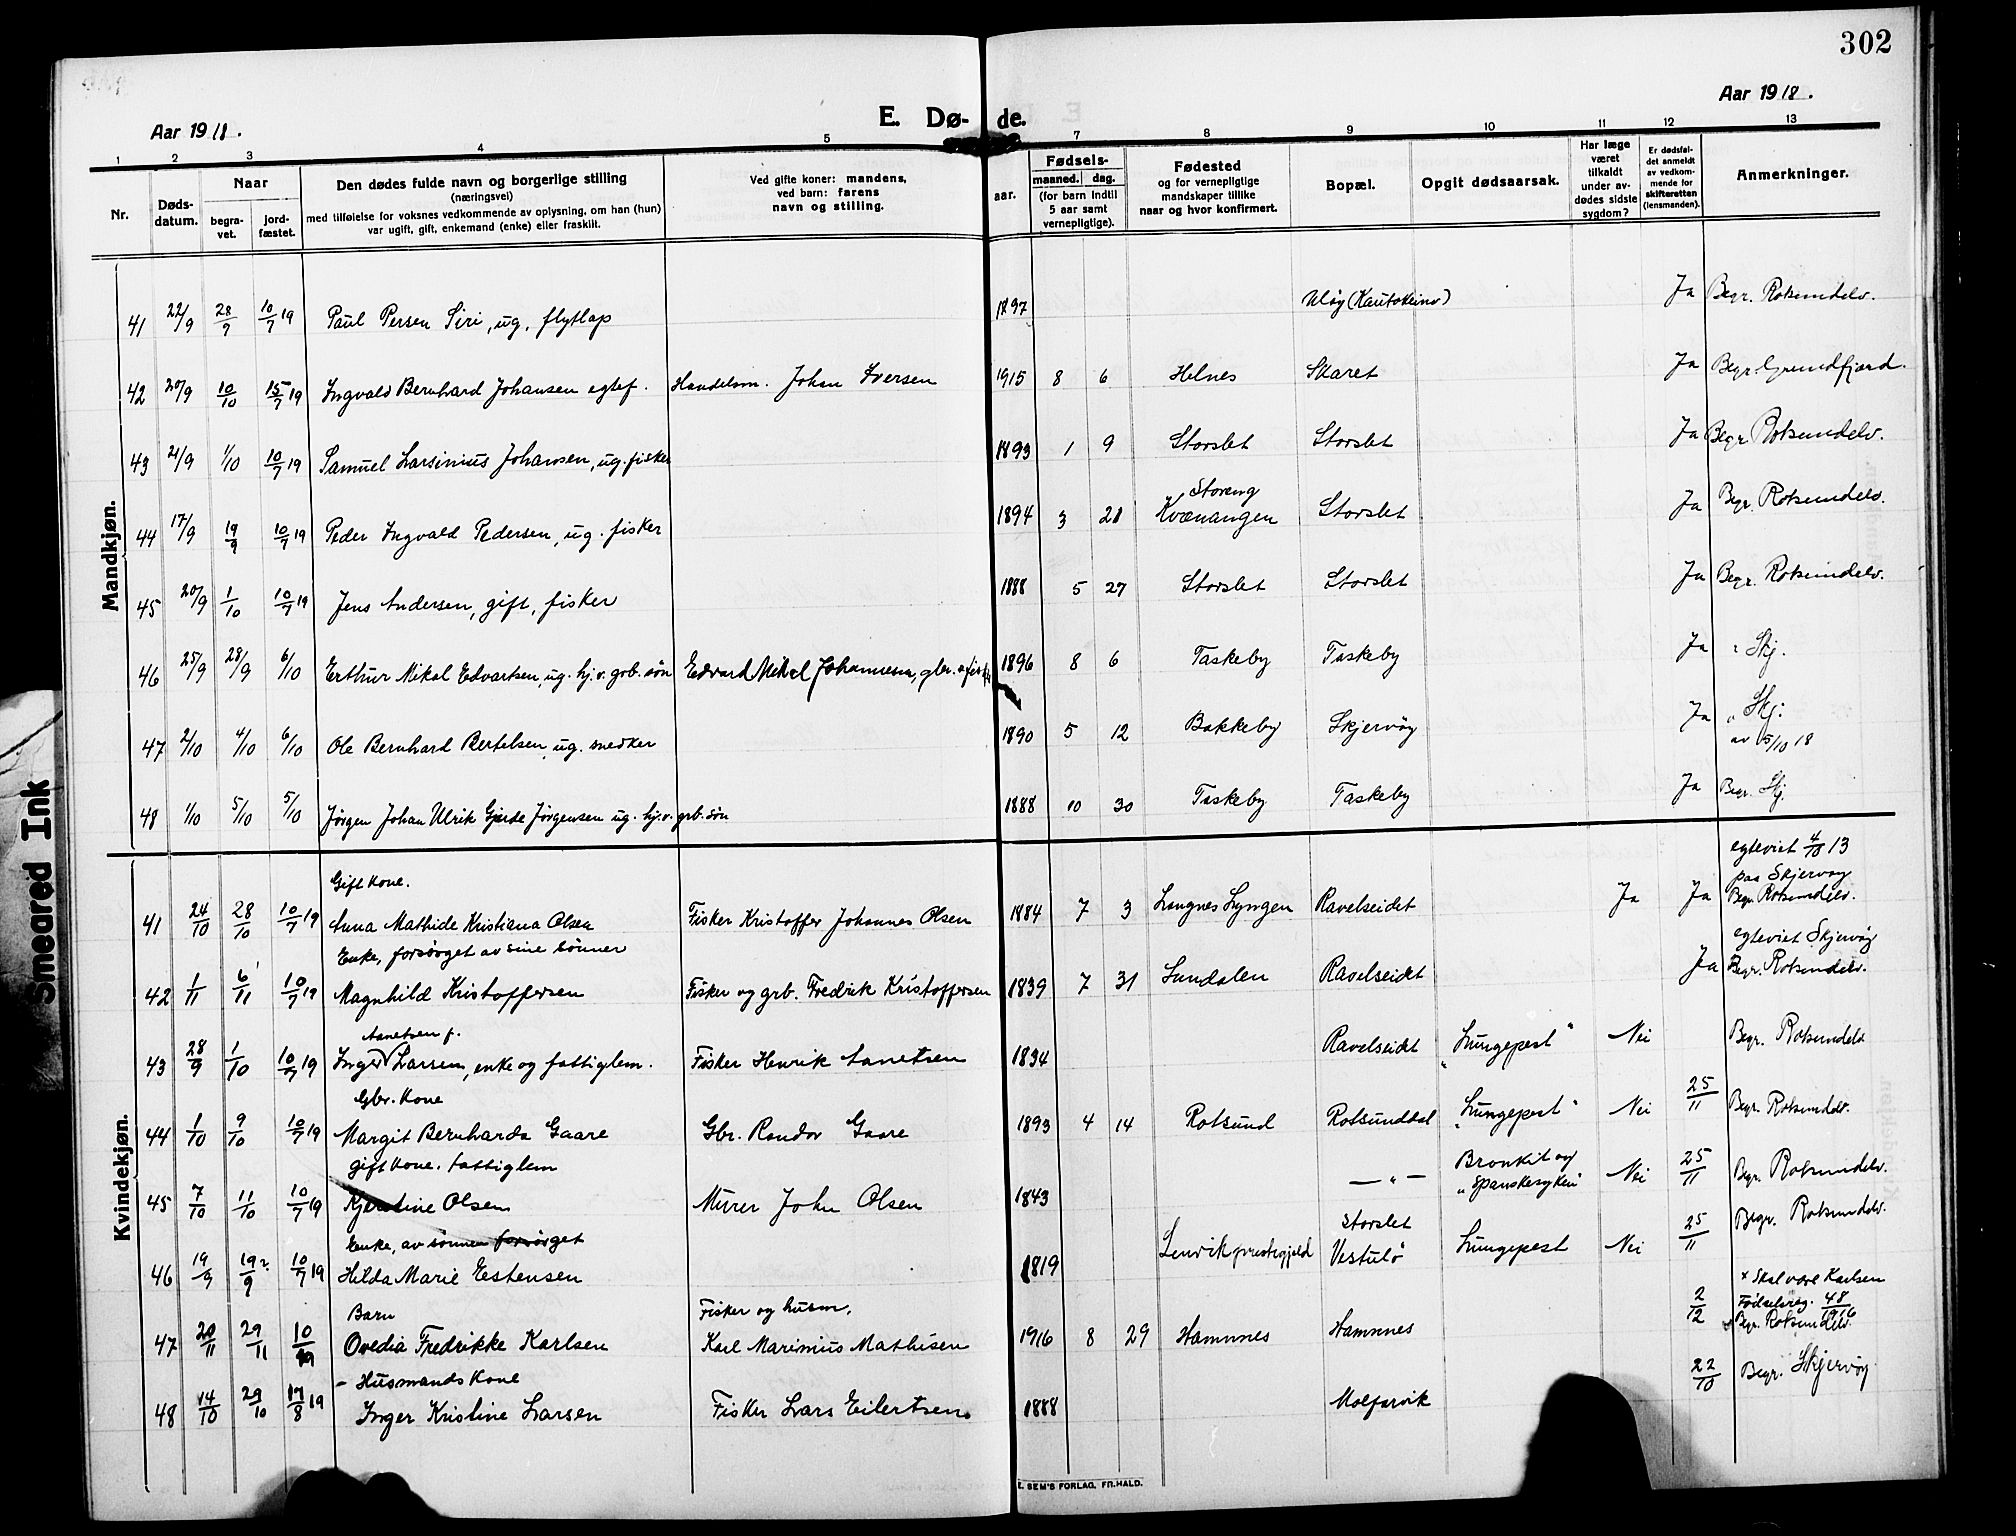 302
Aar 1918.
E. Dø- de.
Aar 1918.
1 2 3 4 5 7 8 9 10 11 12 13
Nr.
Døds-datum.
Naar
begra-vet.
jord-fæstet.
Den dødes fulde navn og borgerlige stilling
(næringsvei)
med tilføielse for voksnes vedkommende av oplysning, om han (hun)
var ugift, gift, enkemand (enke) eller fraskilt.
Ved gifte koner: mandens,
ved barn: farens
navn og stilling.
Fødsels-
aar.
maaned. dag.
(for barn indtil
5 aar samt
vernepligtige).
Fødested
og for vernepligtige
mandskaper tillike
naar og hvor konfirmert.
Bopæl.
Opgit dødsaarsak.
Har læge
været
tilkaldt
under av-
dødes sidste
sygdom?
Er dødsfal-
det anmeldt
av vedkom-
mende for
skifteretten
(lensmanden).
Anmerkninger.
Mandkjøn.
41 22/9 28/9 10/7 19 Paul Persen Siri, ug, flytlap 1897 Uløy (Kautokeino) Ja Begr. Rotsundelv.
42 20/9 10/10 15/7 19 Ingvald Bernhard Johansen egtef. Handelsm. Johan Iversen 1915 8 6 Helnes Skaret Ja Begr. Grundfjord.
43 21/9 1/10 10/7 19 Samuel Larsinius Johansen, ug. fisker 1893 1 9 Storslet Storslet Ja Begr Rotsundelv.
Storeng
44 17/9 19/9 10/7 19 Peder Ingvald Pedersen, ug. fisker 1894 3 21 Kvænangen Storslet Ja Begr. Rotsundelv.
45 20/9 1/10 10/7 19 Jens Andersen, gift, fisker 1888 5 27 Storslet Storslet Ja Begr. Rotsundelv.
46 25/9 28/9 6/10 Erthur Mikal Edvartsen, ug. hj. v. grb. søn Edvard Mikal Johannesen, gbr. o fisker 1896 8 6 Taskeby Taskeby Ja " Skj.
47 2/10 4/10 6/10 Ole Bernhard Bertelsen, ug. snedker 1890 5 12 Bakkeby Skjervøy Ja " Skj.
av 5/10 18
48 1/10 5/10 5/10 Jørgen Johan Ulrik Gjerde Jørgensen ug. hj. v. grb. søn 1888 10 30 Taskeby Taskeby Ja Begr. Skj.
Kvindekjøn.
Gift kone. egteviet 4/10 13
paa Skjervøy
41 24/10 28/10 10/7 19 Anna Mathide Kristiana Olsen Fisker Kristoffer Johannes Olsen 1884 7 3 Langnes Lyngen Ravelseidet Ja Ja Begr. Rotsundelv.
Enke, forsørget av sine sønner egteviet Skjervøy
42 1/11 6/11 10/7 19 Magnhild Kristoffersen Fisker og grb. Fredrik Kristoffersen 1839 7 31 Sundalen Ravelseidet Ja Begr. Rotsundelv.
Aanetsen f.
43 28/9 1/10 10/7 19 Inger Larsen, enke og fattiglem. Fisker Henrik Aanetsen 1834 Ravelseidet "Lungepest" Nei Begr. Rotsundelv
Gbr. Kone
44 1/10 9/10 10/7 19 Margit Bernharda Gaare Gbr. Randor Gaare 1893 4 14 Rotsund Rotsunddal "Lungepest" Nei 25/11 Begr. Rotsundelv.
gift kone. fattiglem Bronkit og
45 7/10 11/10 10/7 19 Kjerstine Olsen Murer John Olsen 1843 — " — "Spanskesyken" Nei 25/11 Begr. Rotsundelv.
Enke, av sønnen forsørget Storslet
46 19/9 19?/9 10/7 19 Hilda Marie Estensen 1819 Lenvik prestegjeld Vestulø Lungepest Nei 25/11 Begr. Rotsundelv.
Barn Fisker og husm. × Skal være Karlsen
Fødselsreg. 48/1916
47 20/11 29/11 10/19 Ovedia Fredrikke Karlsen Karl Marinius Mathisen 1916 8 29 Hamnes Hamnes 2/12 Begr. Rotsundelv.
— Husmands Kone
48 14/10 29/10 17/8 19 Inger Kristine Larsen Fisker Lars Eilertsen 1888 Molfarvik 22/10 Begr. Skjervøy
E. SEM'S FORLAG, FR.HALD.
Smeared Ink